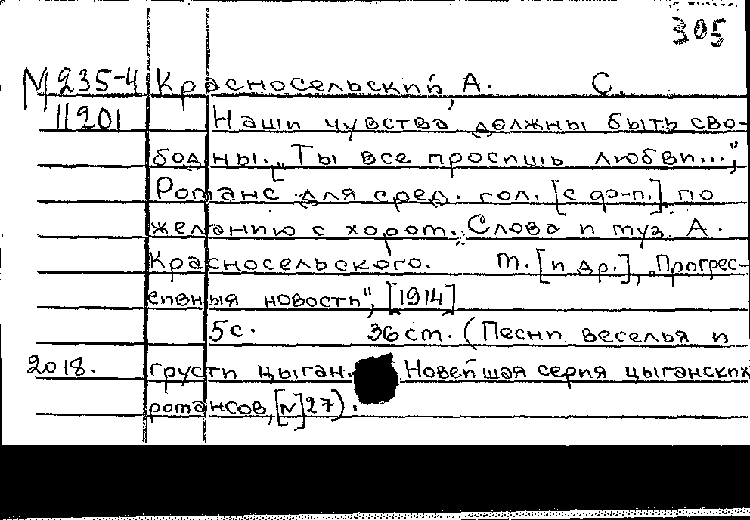 305
М 235-4 Красносельский, А. С.
11201 Наши чувства должны быть сво-
бодны. „Ты все просишь любви...",
Романс для сред. гол. [с ф-п.], по
желанию с хором. Слова и муз. А.
Красносельского. М. [и др.], „Прогрес-
сивныя новости", [1914]
5с. 36см. (Песни веселья и
2018. грусти цыган. Новейшая серия цыганских
романсов, [№]27).